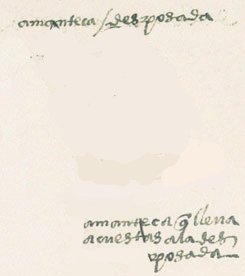 amanteca / desposada
amanteca q̃ lleva
acuestas ala des
posada